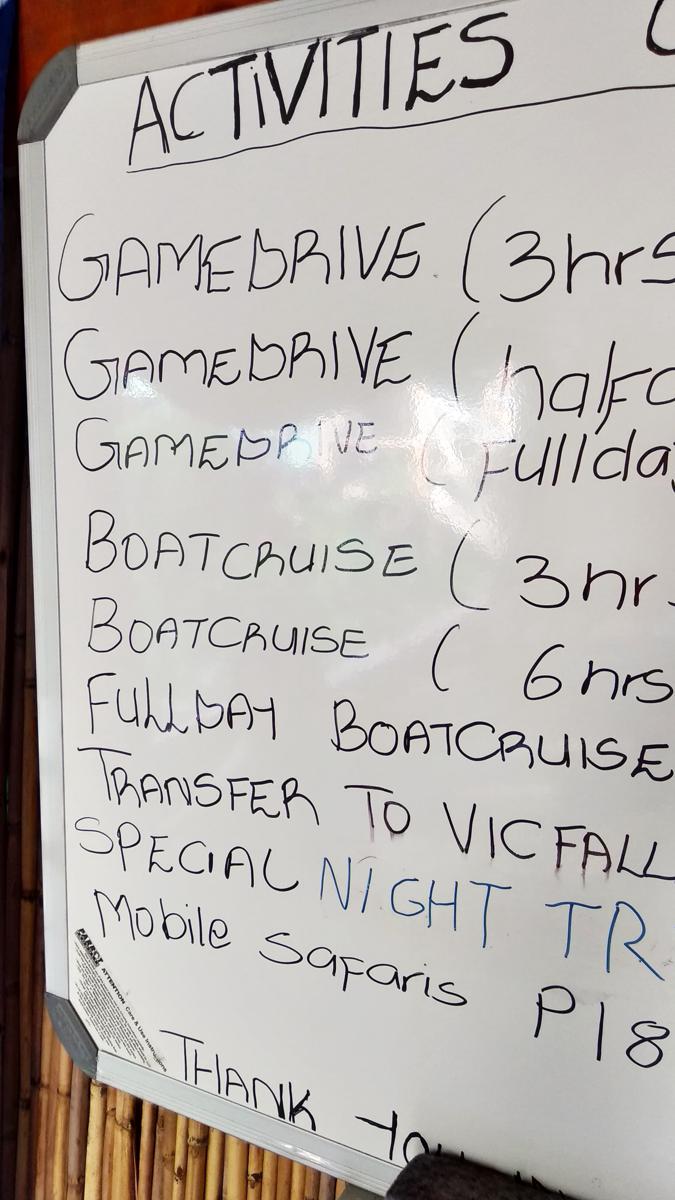 ACTIVITIES
GAMEDRIVE (3hrs
GAMEDRIVE (half
GAMEDRIVE (Fullda
BOATCRUISE (3hr
BOATCRUISE (6hrs
FULLDAY BOATCRUISE
TRANSFER TO VICFALL
SPECIAL NIGHT TR
Mobile safaris P18
PARROT
ATTENTION: Care & Use Instructions
THANK You